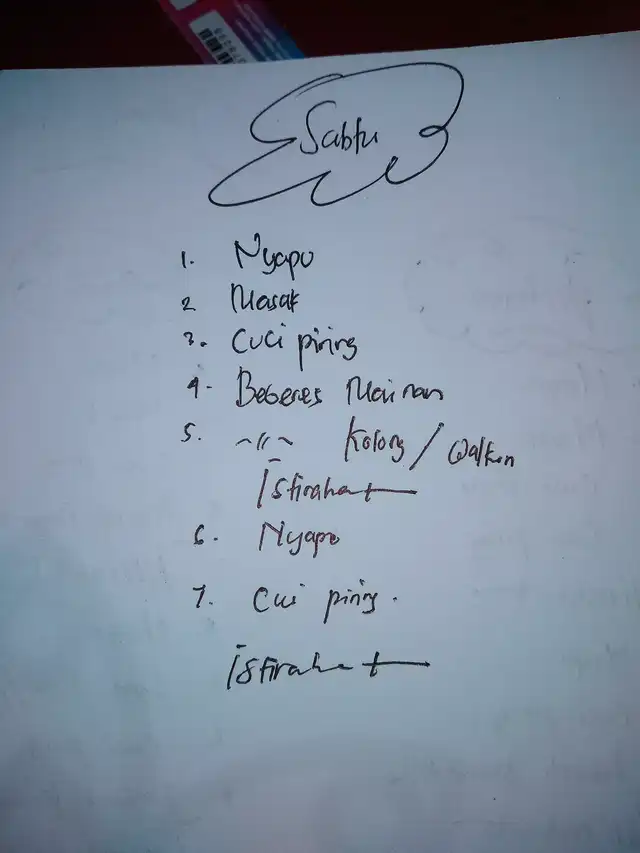 Sabtu
1. Nyapu
2 Masak
3. Cuci piring
4. Beberes Mainan
5. ~ 11 ~ Kolong /
Istirahat
6. Nyapu
7. Cuci piring.
istirahat